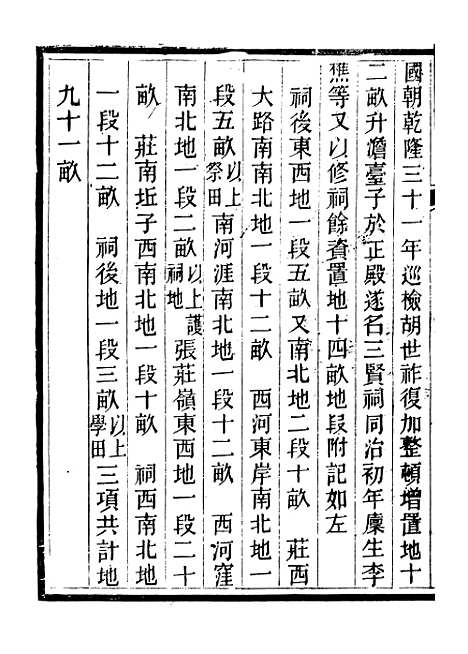 國朝乾隆三十一年巡檢胡世祚復加整頓增置地十
二畝升澹臺子於正殿遂名三賢祠同治初年廩生李
樵等又以修祠餘資置地十四畝地段附記如左
祠後東西地一段五畝又南北地二段十畝　莊西
大路南南北地一段十二畝　西河東岸南北地一
段五畝以上祭田南河涯南北地一段十二畝　西河窪
南北地一段二畝以上護祠地張莊嶺東西地一段二十
畝　莊南坵子西南北地一段十畝　祠西南北地
一段十二畝　祠後地一段三畝以上學田三項共計地
九十一畝